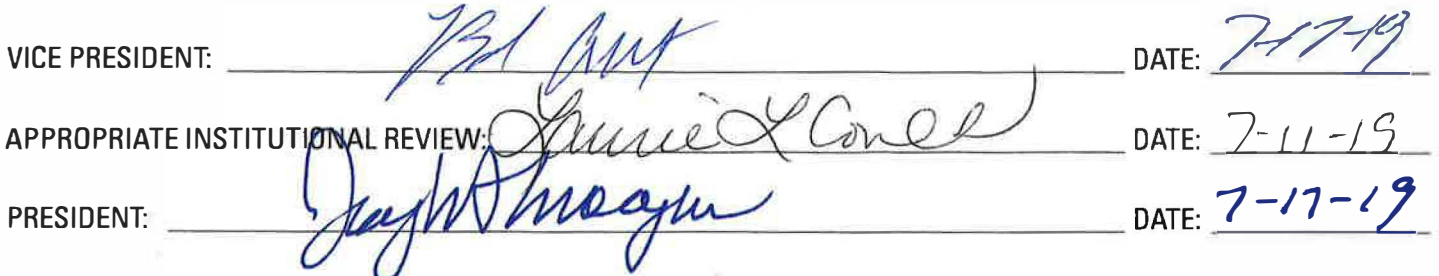 VICE PRESIDENT: DATE: 7-17-19
APPROPRIATE INSTITUTIONAL REVIEW: Laurie L DATE: 7-11-19
PRESIDENT: DATE: 7-17-19